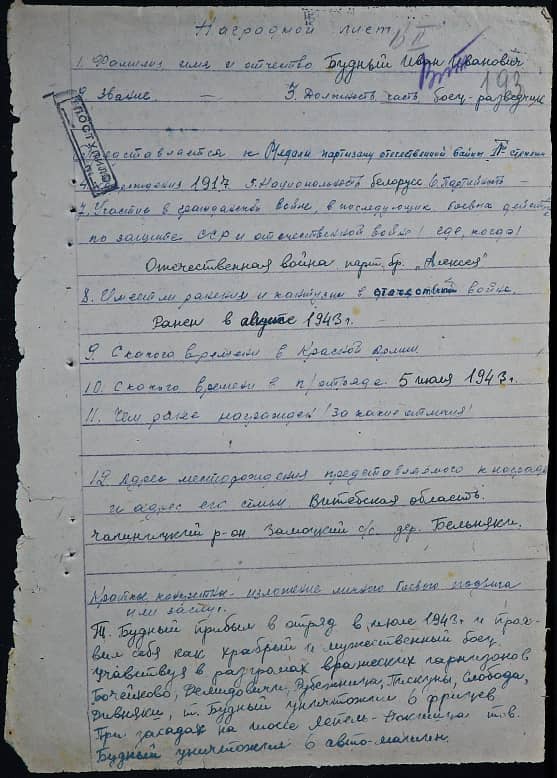 Наградной лист
1. Фамилия имя и отчество Будный Иван Иванович
193
2. Звание — 3. Должность часть боец-разведчик
ПОСТУПИЛО
представляется к Медали партизану отечественной войны II степени
рождения 1917 5. Национальность белорус 6. Партийность —
7. Участие в гражданской войне, в последующих боевых действ
по защите СССР и отечественной войне! где, когда!
Отечественная война парт. бр. „Алексея"
8. Имеет ли ранения и контузии в отечествен войне.
Ранен в августе 1943 г.
9. С какого времени в Красной Армии
10. С какого времени в п/отряде. 5 июля 1943 г.
11. Чем ранее награжден! За какие отличия!
12. Адрес месторождения представляемого к награде
и адрес его семьи. Витебская область
Чашникский р-он. Замоцкий с/с. дер. Бельняки.
Краткое конкретное изложение личного боевого подвига
или заслуг.
Т. Будный прибыл в отряд в июле 1943 г и проя-
вил себя как храбрый и мужественный боец
учавствуя в разгромах вражеских гарнизонов
Бочейково, Демидовичи, Рубежники, Пискуны, Слобода,
т. Будный уничтожил 6 фрицев
При засадах на шоссе Лепель - Докшицы тов.
Будный уничтожил 6 авто-машин.